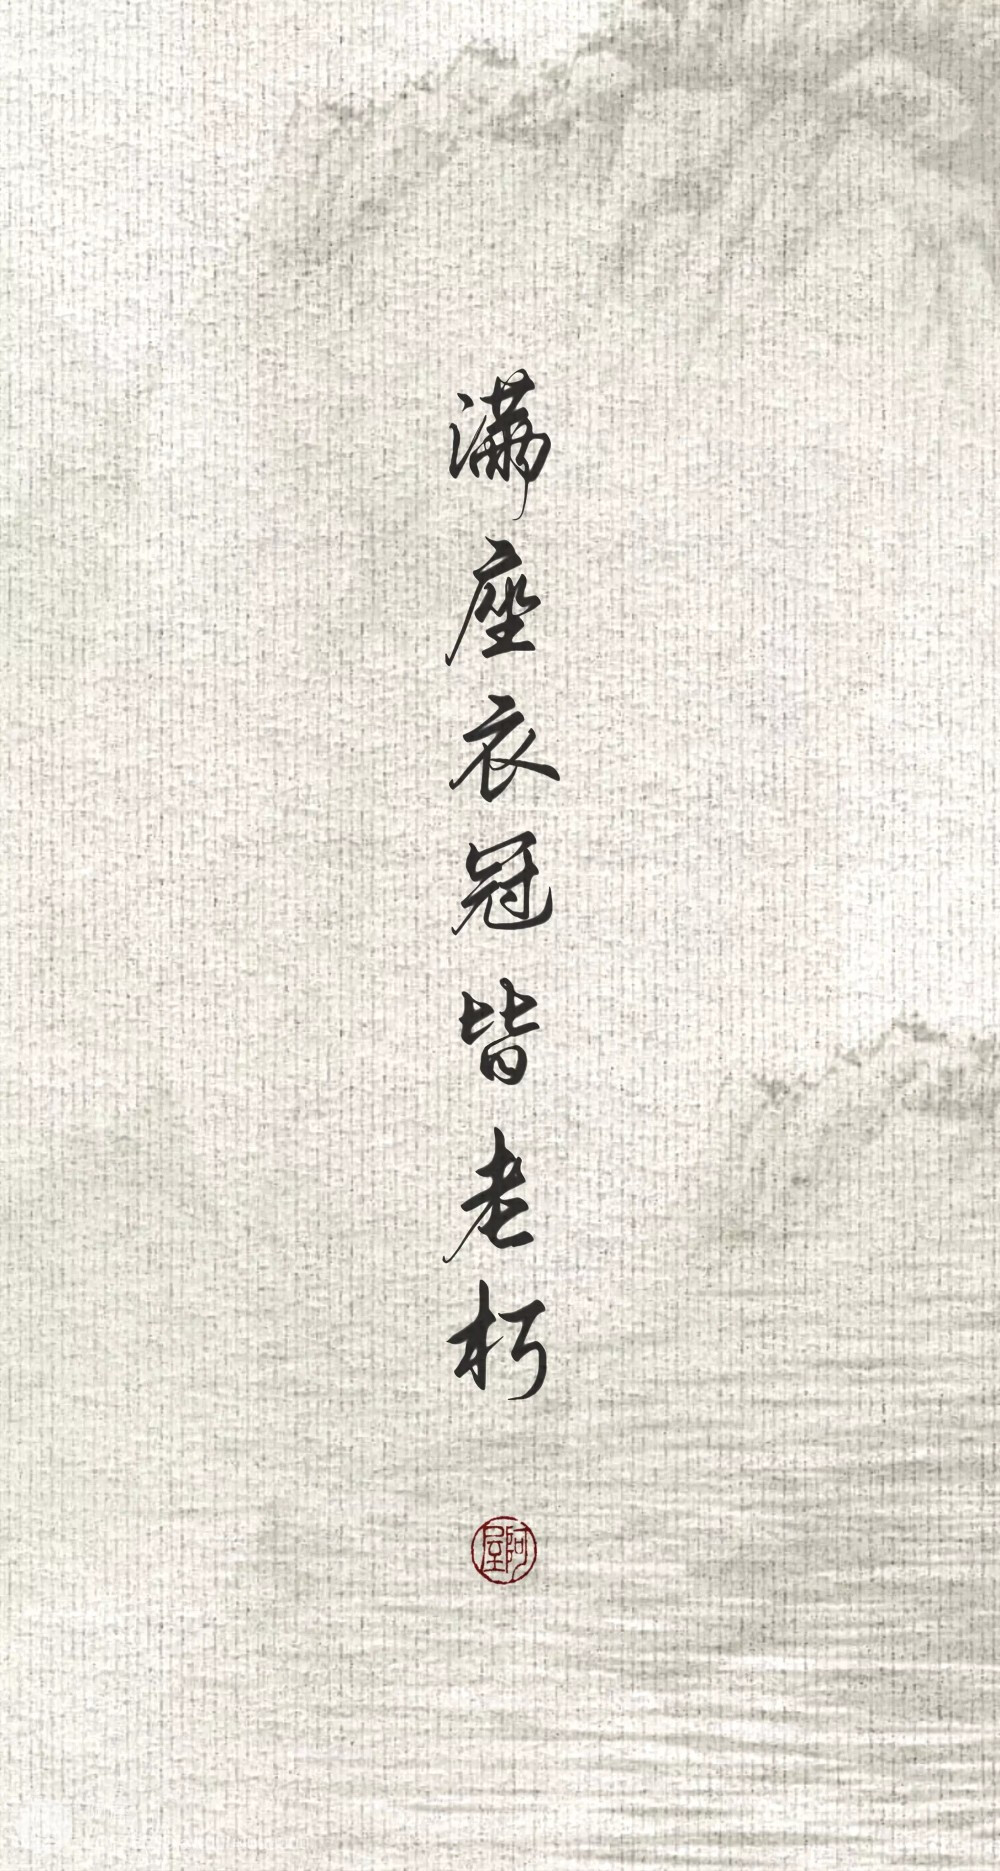 满座衣冠皆老朽
阿屋